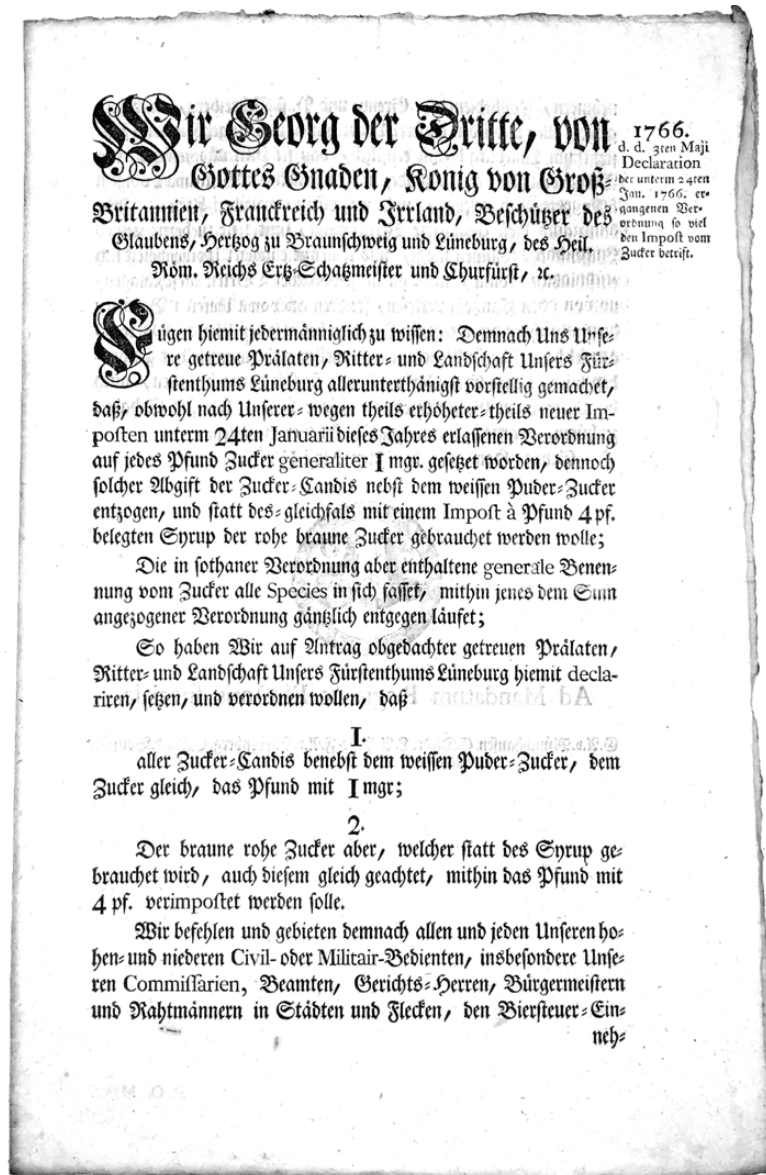 Wir Georg der Dritte, von
Gottes Gnaden, König von Groß-
Britannien, Franckreich und Irrland, Beschützer des
Glaubens, Hertzog zu Braunschweig und Lüneburg, des Heil.
Röm. Reichs Ertz-Schatzmeister und Churfürst, ꝛc.
1766.
d. d. 3ten Maji
Declaration
der unterm 24ten
Jan. 1766. er-
gangenen Ver-
ordnung so viel
den Impost vom
Zucker betrift.
Fügen hiemit jedermänniglich zu wissen: Demnach Uns Unse-
re getreue Prälaten, Ritter- und Landschaft Unsers Für-
stenthums Lüneburg allerunterthänigst vorstellig gemachet,
daß, obwohl nach Unserer- wegen theils erhöheter- theils neuer Im-
posten unterm 24ten Januarii dieses Jahres erlassenen Verordnung
auf jedes Pfund Zucker generaliter 1 mgr. gesetzet worden, dennoch
solcher Abgift der Zucker-Candis nebst dem weissen Puder-Zucker
entzogen, und statt des-gleichfals mit einem Impost à Pfund 4 pf.
belegten Syrup der rohe braune Zucker gebrauchet werden wolle;
Die in sothaner Verordnung aber enthaltene generale Benen-
nung vom Zucker alle Species in sich fasset, mithin jenes dem Sinn
angezogener Verordnung gäntzlich entgegen läufet;
So haben Wir auf Antrag obgedachter getreuen Prälaten,
Ritter- und Landschaft Unsers Fürstenthums Lüneburg hiemit decla-
riren, setzen, und verordnen wollen, daß
1.
aller Zucker-Candis benebst dem weissen Puder-Zucker, dem
Zucker gleich, das Pfund mit 1 mgr;
2.
Der braune rohe Zucker aber, welcher statt des Syrup ge-
brauchet wird, auch diesem gleich geachtet, mithin das Pfund mit
4 pf. verimpostet werden solle.
Wir befehlen und gebieten demnach allen und jeden Unseren ho-
hen- und niederen Civil- oder Militair-Bedienten, insbesondere Unse-
ren Commissarien, Beamten, Gerichts-Herren, Bürgermeistern
und Rahtmännern in Städten und Flecken, den Biersteuer-Ein-
neh-